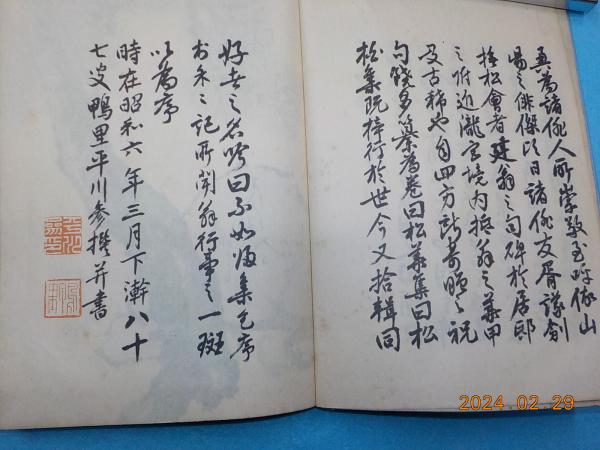 真為諸俳人所崇敬玉㟢俳山
易之俳傑以日諸俳友胥謀創
桂松會者建翁之句碑於居邸
之附近瀧宮境内抵翁之華甲
及古稀也自四方所寄贈之祝
句饒多纂為巻曰松華集曰松
松集既梓行於世今又拾輯同
好者之名吟曰不如帰集乞序
於余之記所聞翁行事之一斑
以為序
時在昭和六年三月下澣八十
七叟鴨里平川参撰并書